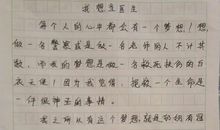 我想当医生
每个人的心中都会有一个梦想!想
做一名警察或是做一名老师的人不计其
数,而我的梦想是做一名救死扶伤的白
衣天使!因为我觉得,挽救一个生命是
一件很神圣的事情。
我之所以有这个梦想,就是